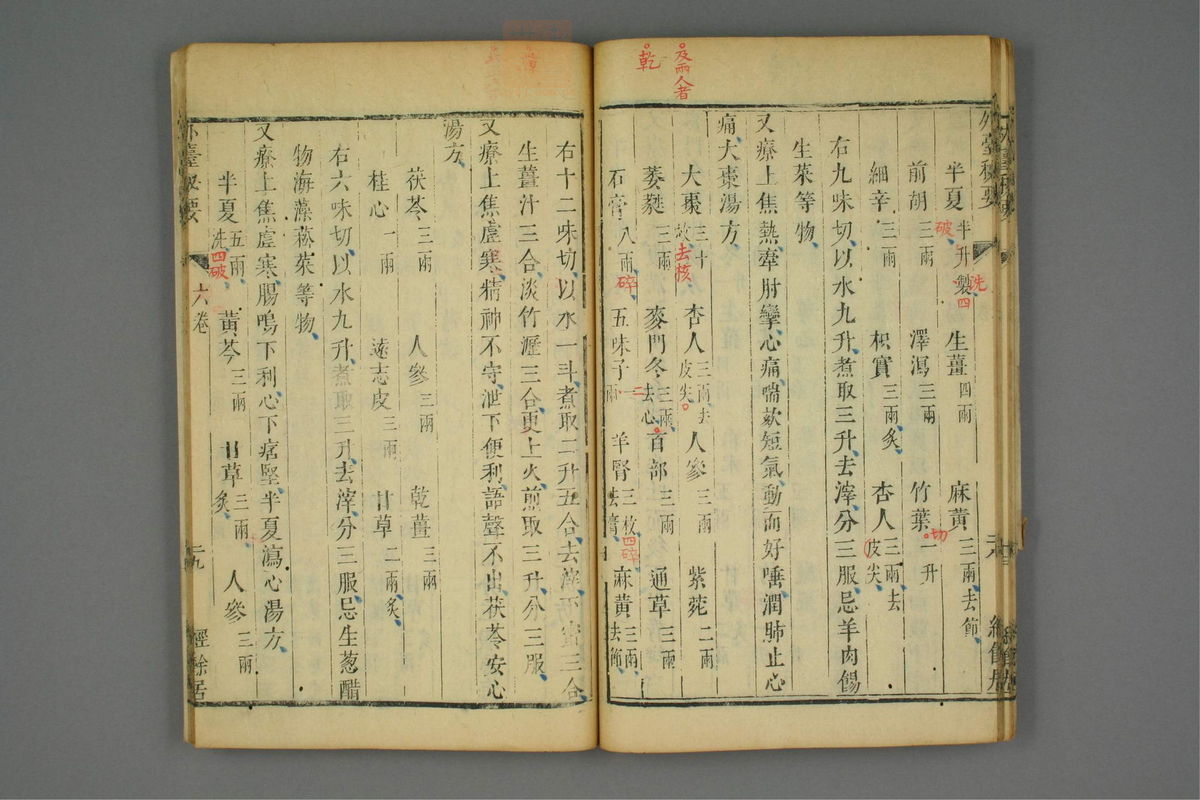 及兩人者
乾
外臺秘要
半夏半升製洗四 生薑四兩 麻黃三兩去節
前胡三兩破 澤瀉三兩 竹葉切一升
細辛三兩 枳實三兩炙 杏人三兩去皮尖
右九味切以水九升煮取三升去滓分三服忌羊肉餳
生菜等物
又療上焦熱牽肘攣心痛喘欬短氣動而好唾潤肺止心
痛大棗湯方
大棗三十枚去核 杏人三兩去皮尖 人參三兩 紫菀二兩
葳蕤三兩 麥門冬三兩去心 百部三兩 通草三兩
石膏八兩碎 五味子三兩 羊腎三枚去膏四碎 麻黃三兩去節
右十二味切以水一斗煮取二升五合去滓下蜜三合
生薑汁三合淡竹瀝三合更上火煎取三升分三服
又療上焦虛寒精神不守泄下便利語聲不出茯苓安心
湯方
茯苓三兩 人參三兩 乾薑三兩
桂心一兩 遠志皮三兩 甘草二兩炙
右六味切以水九升煮取三升去滓分三服忌生葱醋
物海藻菘菜等物
又療上焦虛寒腸鳴下利心下痞堅半夏瀉心湯方
半夏五兩洗四破 黃芩三兩 甘草三兩炙 人參三兩
外臺秘要 六卷 二九 經餘居